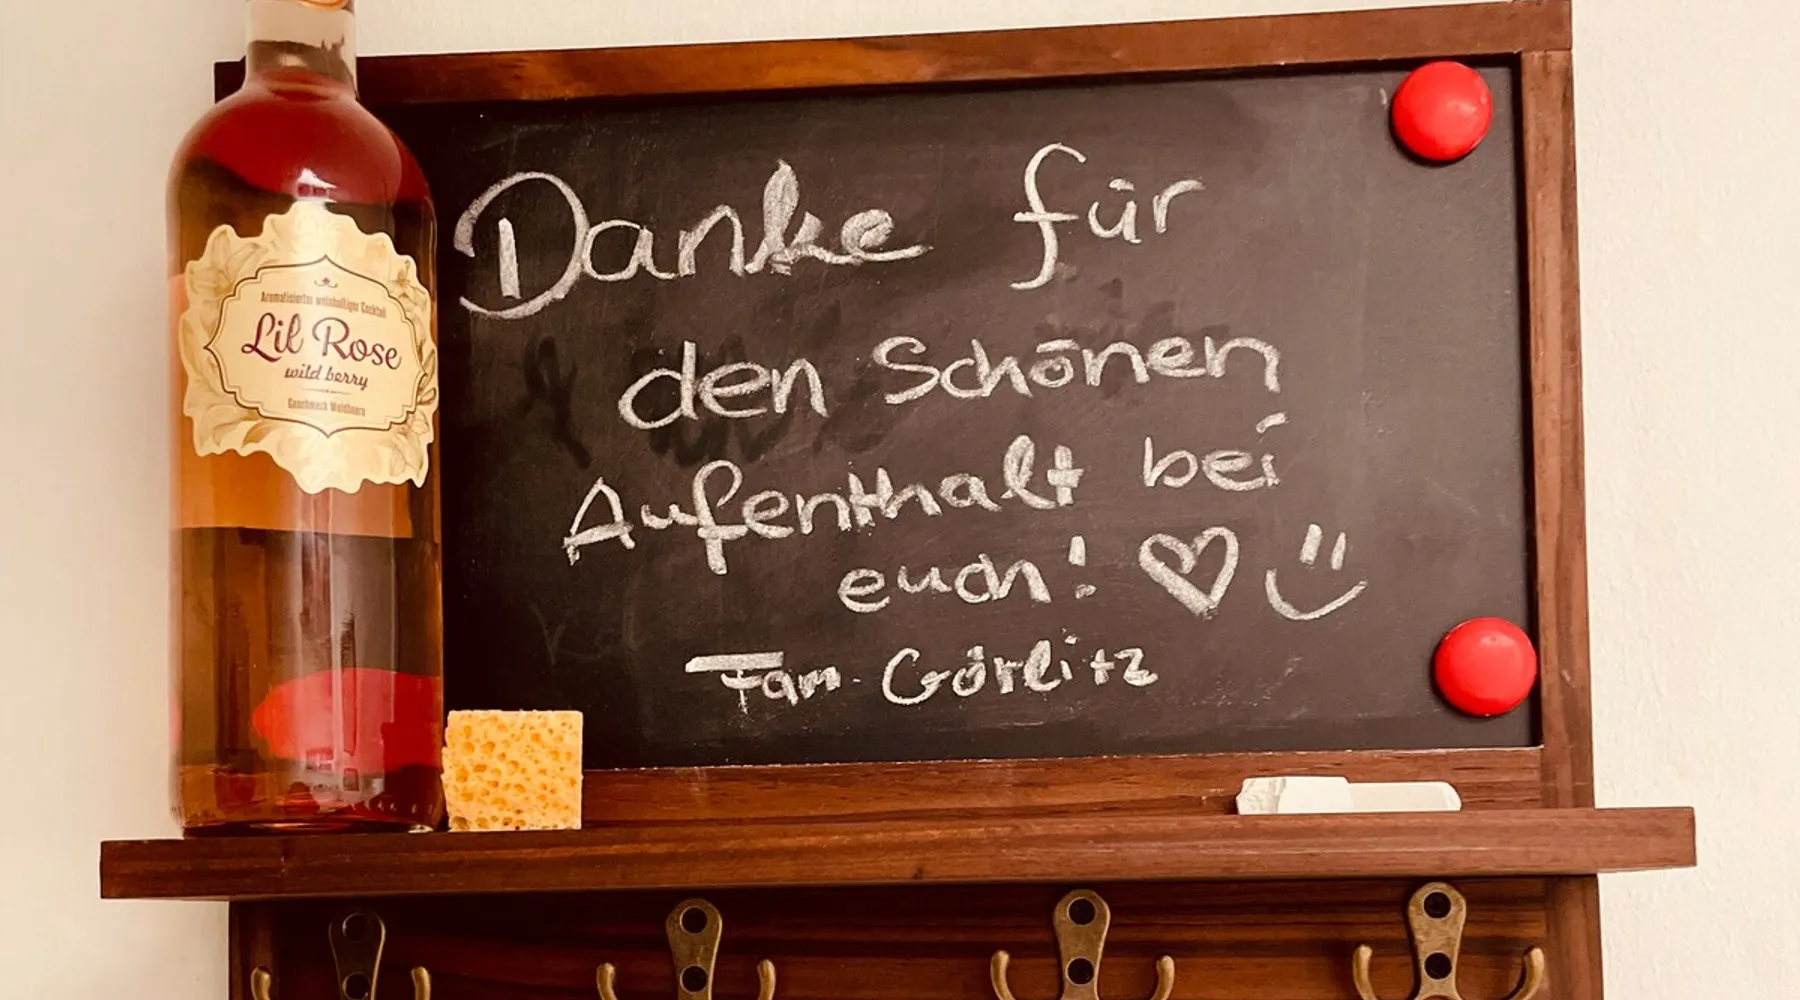 Aromatisierter weinhaltiger Cocktail
Lil Rose
wild berry
Geschmack Waldbeere
Danke für
den Schönen
Aufenthalt bei
euch!
Fam. Görlitz